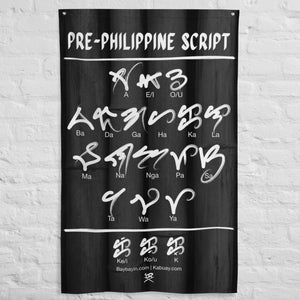 PRE-PHILIPPINE SCRIPT
ᜀ ᜁ ᜂ
A E/I O/U
ᜊ ᜇ ᜄ ᜑ ᜃ ᜎ
Ba Da Ga Ha Ka La
ᜋ ᜈ ᜅ ᜉ ᜐ
Ma Na Nga Pa Sa
ᜆ ᜏ ᜌ
Ta Wa Ya
ᜃᜒ ᜃᜓ ᜃ᜔
Ke/i Ko/u K
Baybayin.com | Kabuay.com